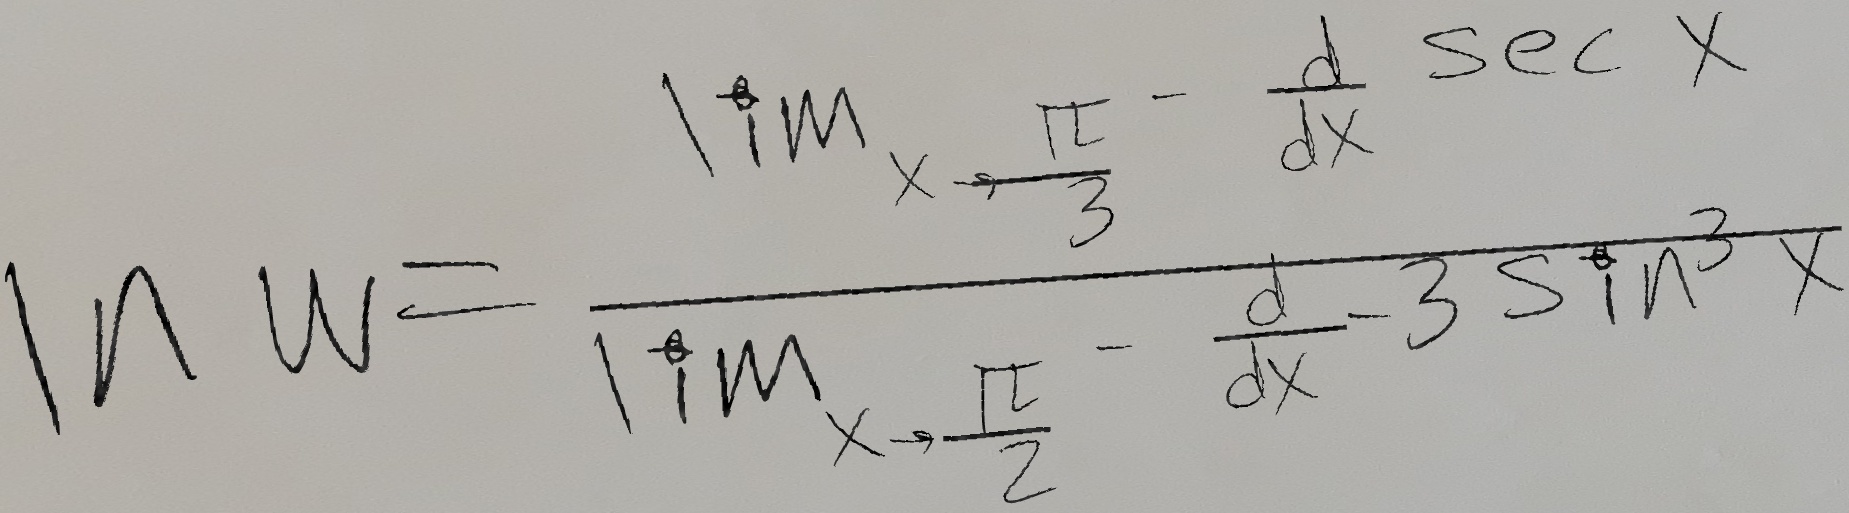 \ln w = \frac{\lim_{x \to \frac{\pi}{3}^-} \frac{d}{dx} \sec x}{\lim_{x \to \frac{\pi}{2}^-} \frac{d}{dx} -3 \sin^3 x}